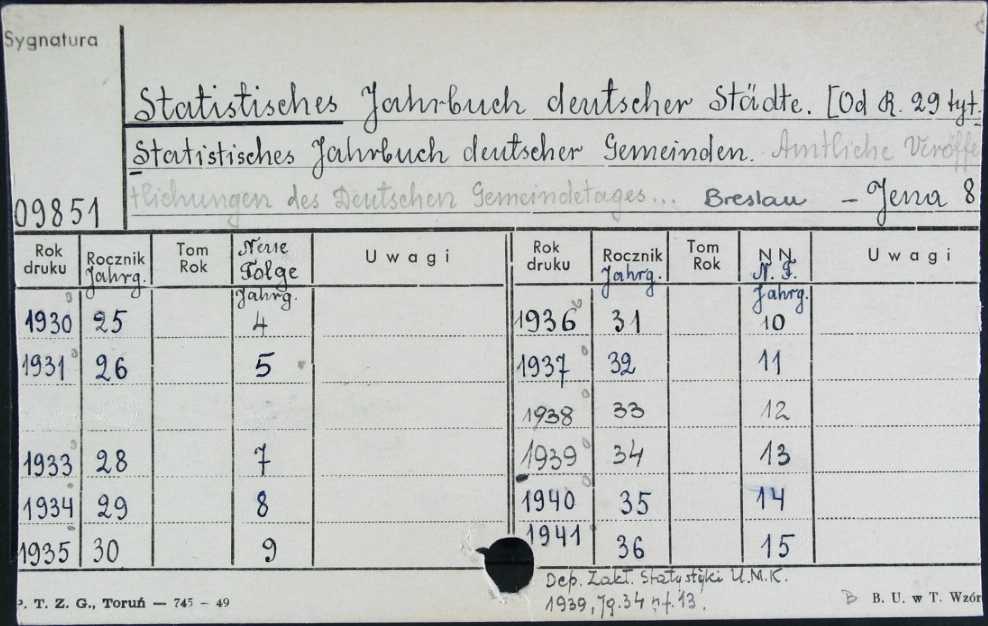 Sygnatura
Statistisches Jahrbuch deutscher Städte. [Od R. 29 tyt.
Statistisches Jahrbuch deutscher Gemeinden. Amtliche Veröffe
tlichungen des Deutschen Gemeindetages... Breslau – Jena 8
09851
Rok druku Rocznik Jahrg. Tom Rok Neue Folge Jahrg. Uwagi Rok druku Rocznik Jahrg. Tom Rok N N. N. F. Jahrg. Uwagi
1930 25 4 1936 31 10
1931 26 5 1937 32 11
1938 33 12
1933 28 7 1939 34 13
1934 29 8 1940 35 14
1935 30 9 1941 36 15
Dep. Zakł. Statystyki U.M.K.
1939, Jg. 34 nf. 13.
P. T. Z. G., Toruń — 745 – 49 B. U. w T. Wzór